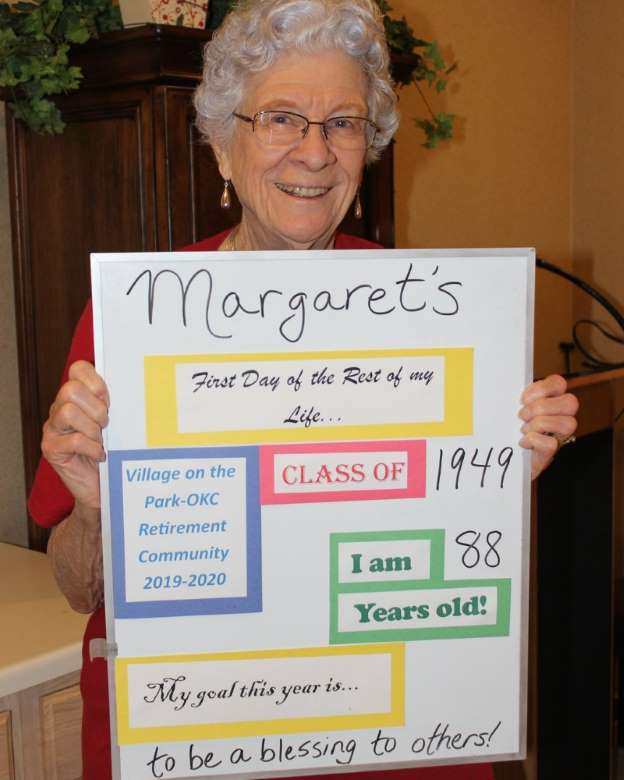 Margaret's
First Day of the Rest of my
Life...
Village on the
Park-OKC
Retirement
Community
2019-2020
CLASS OF 1949
I am 88
Years old!
My goal this year is...
to be a blessing to others!